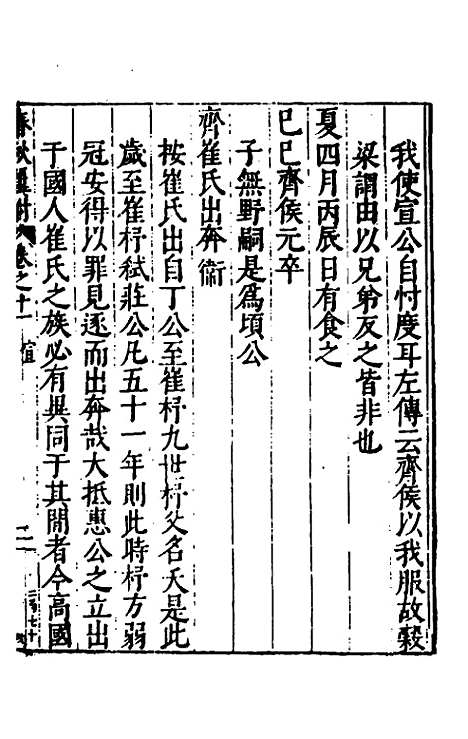 我使宣公自忖度耳左傳云齊侯以我服故穀
梁謂由以兄弟反之皆非也
夏四月丙辰日有食之
己巳齊侯元卒
子無野嗣是爲頃公
齊崔氏出奔衞
按崔氏出自丁公至崔杼九世杼父名夭是此
歲至崔杼弒莊公凡五十一年則此時杼方弱
冠安得以罪見逐而出奔哉大抵惠公之立出
于國人崔氏之族必有異同于其間者今高國
春秋 卷之十一 宣